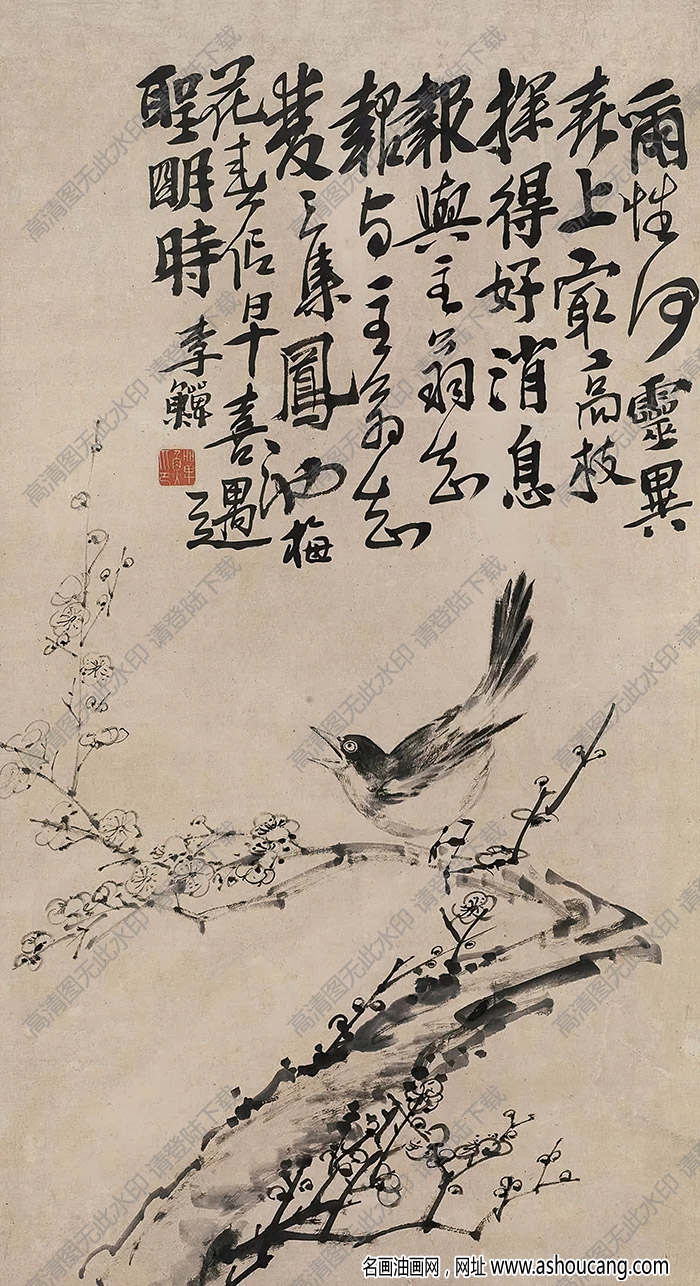 爾性何靈異
上最高枝
探得好消息
報與主翁知
報与主翁知
雙々集鳳池梅
花春信早喜遇
聖明時 李鱓
高清图无此水印 请登陆下载
名画油画网，网址 www.ashoucang.com